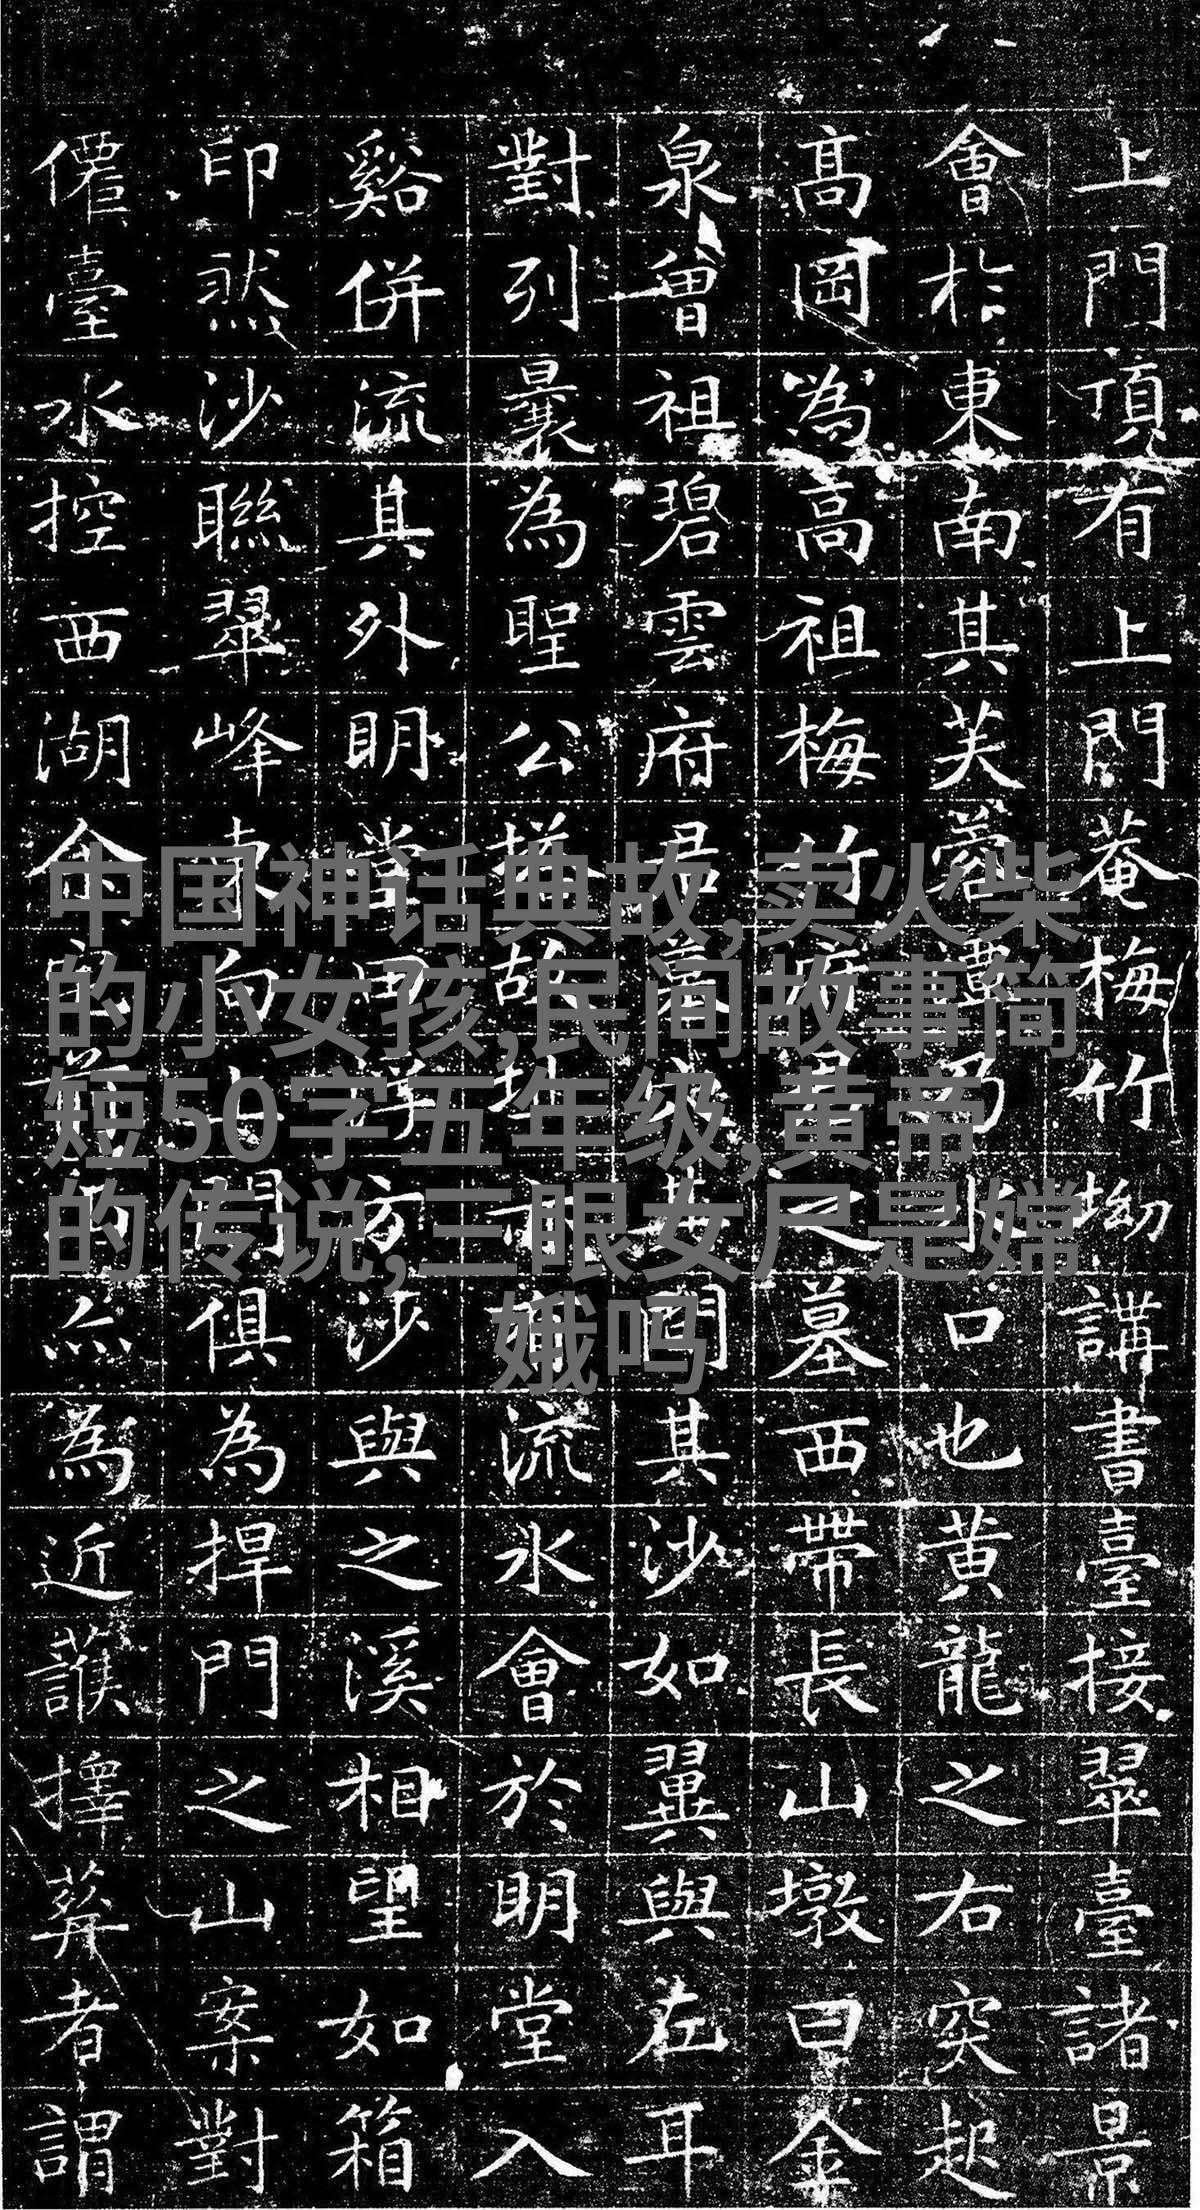 上門頂有上門菴梅竹坳講書臺接翠臺諸景
會扵東南其芙蓉乃水口也黄龍之右突起
高岡為高祖梅竹府君之墓西帶長山墩曰金
泉曾祖碧雲府君墓其間其沙如翼與左耳
對列曩為聖公故流水會於明堂入
谿併流其外明堂方沙與之溪相望如箱
印然沙聯翠峰東向上門俱為捍門之山案對
僊臺水控西湖余為近擇葬者謂
中国神话典故,卖火柴
的小女孩,民间故事简
短50字五年级,黄帝
的传说,三眼女尸是嫦
娥吗